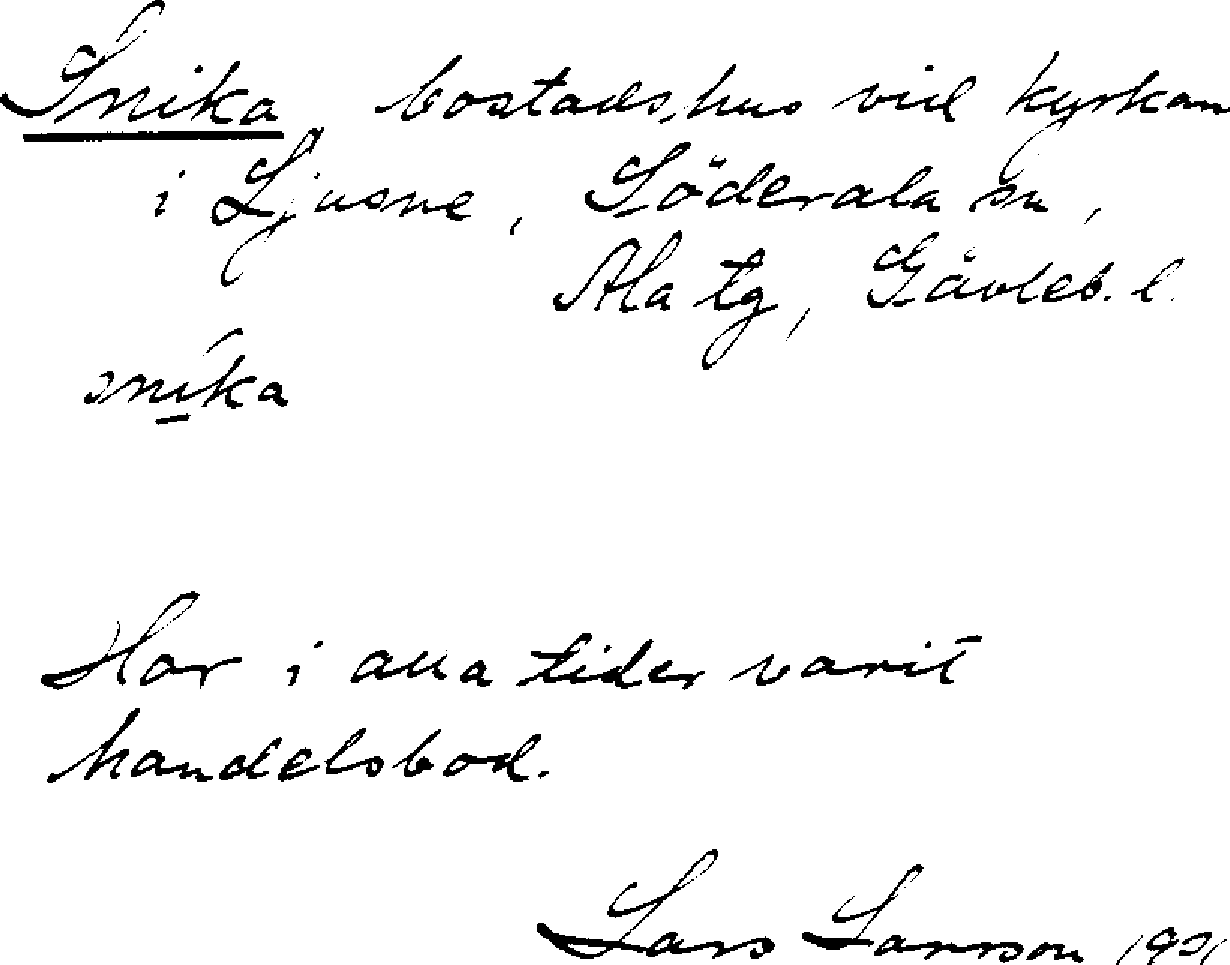 Snika, bostadshus vid kyrkan
i Ljusne, Söderala sn,
Ala tg, Gävleb. l.
snika
Har i alla tider varit
handelsbod.
Lars Larsson